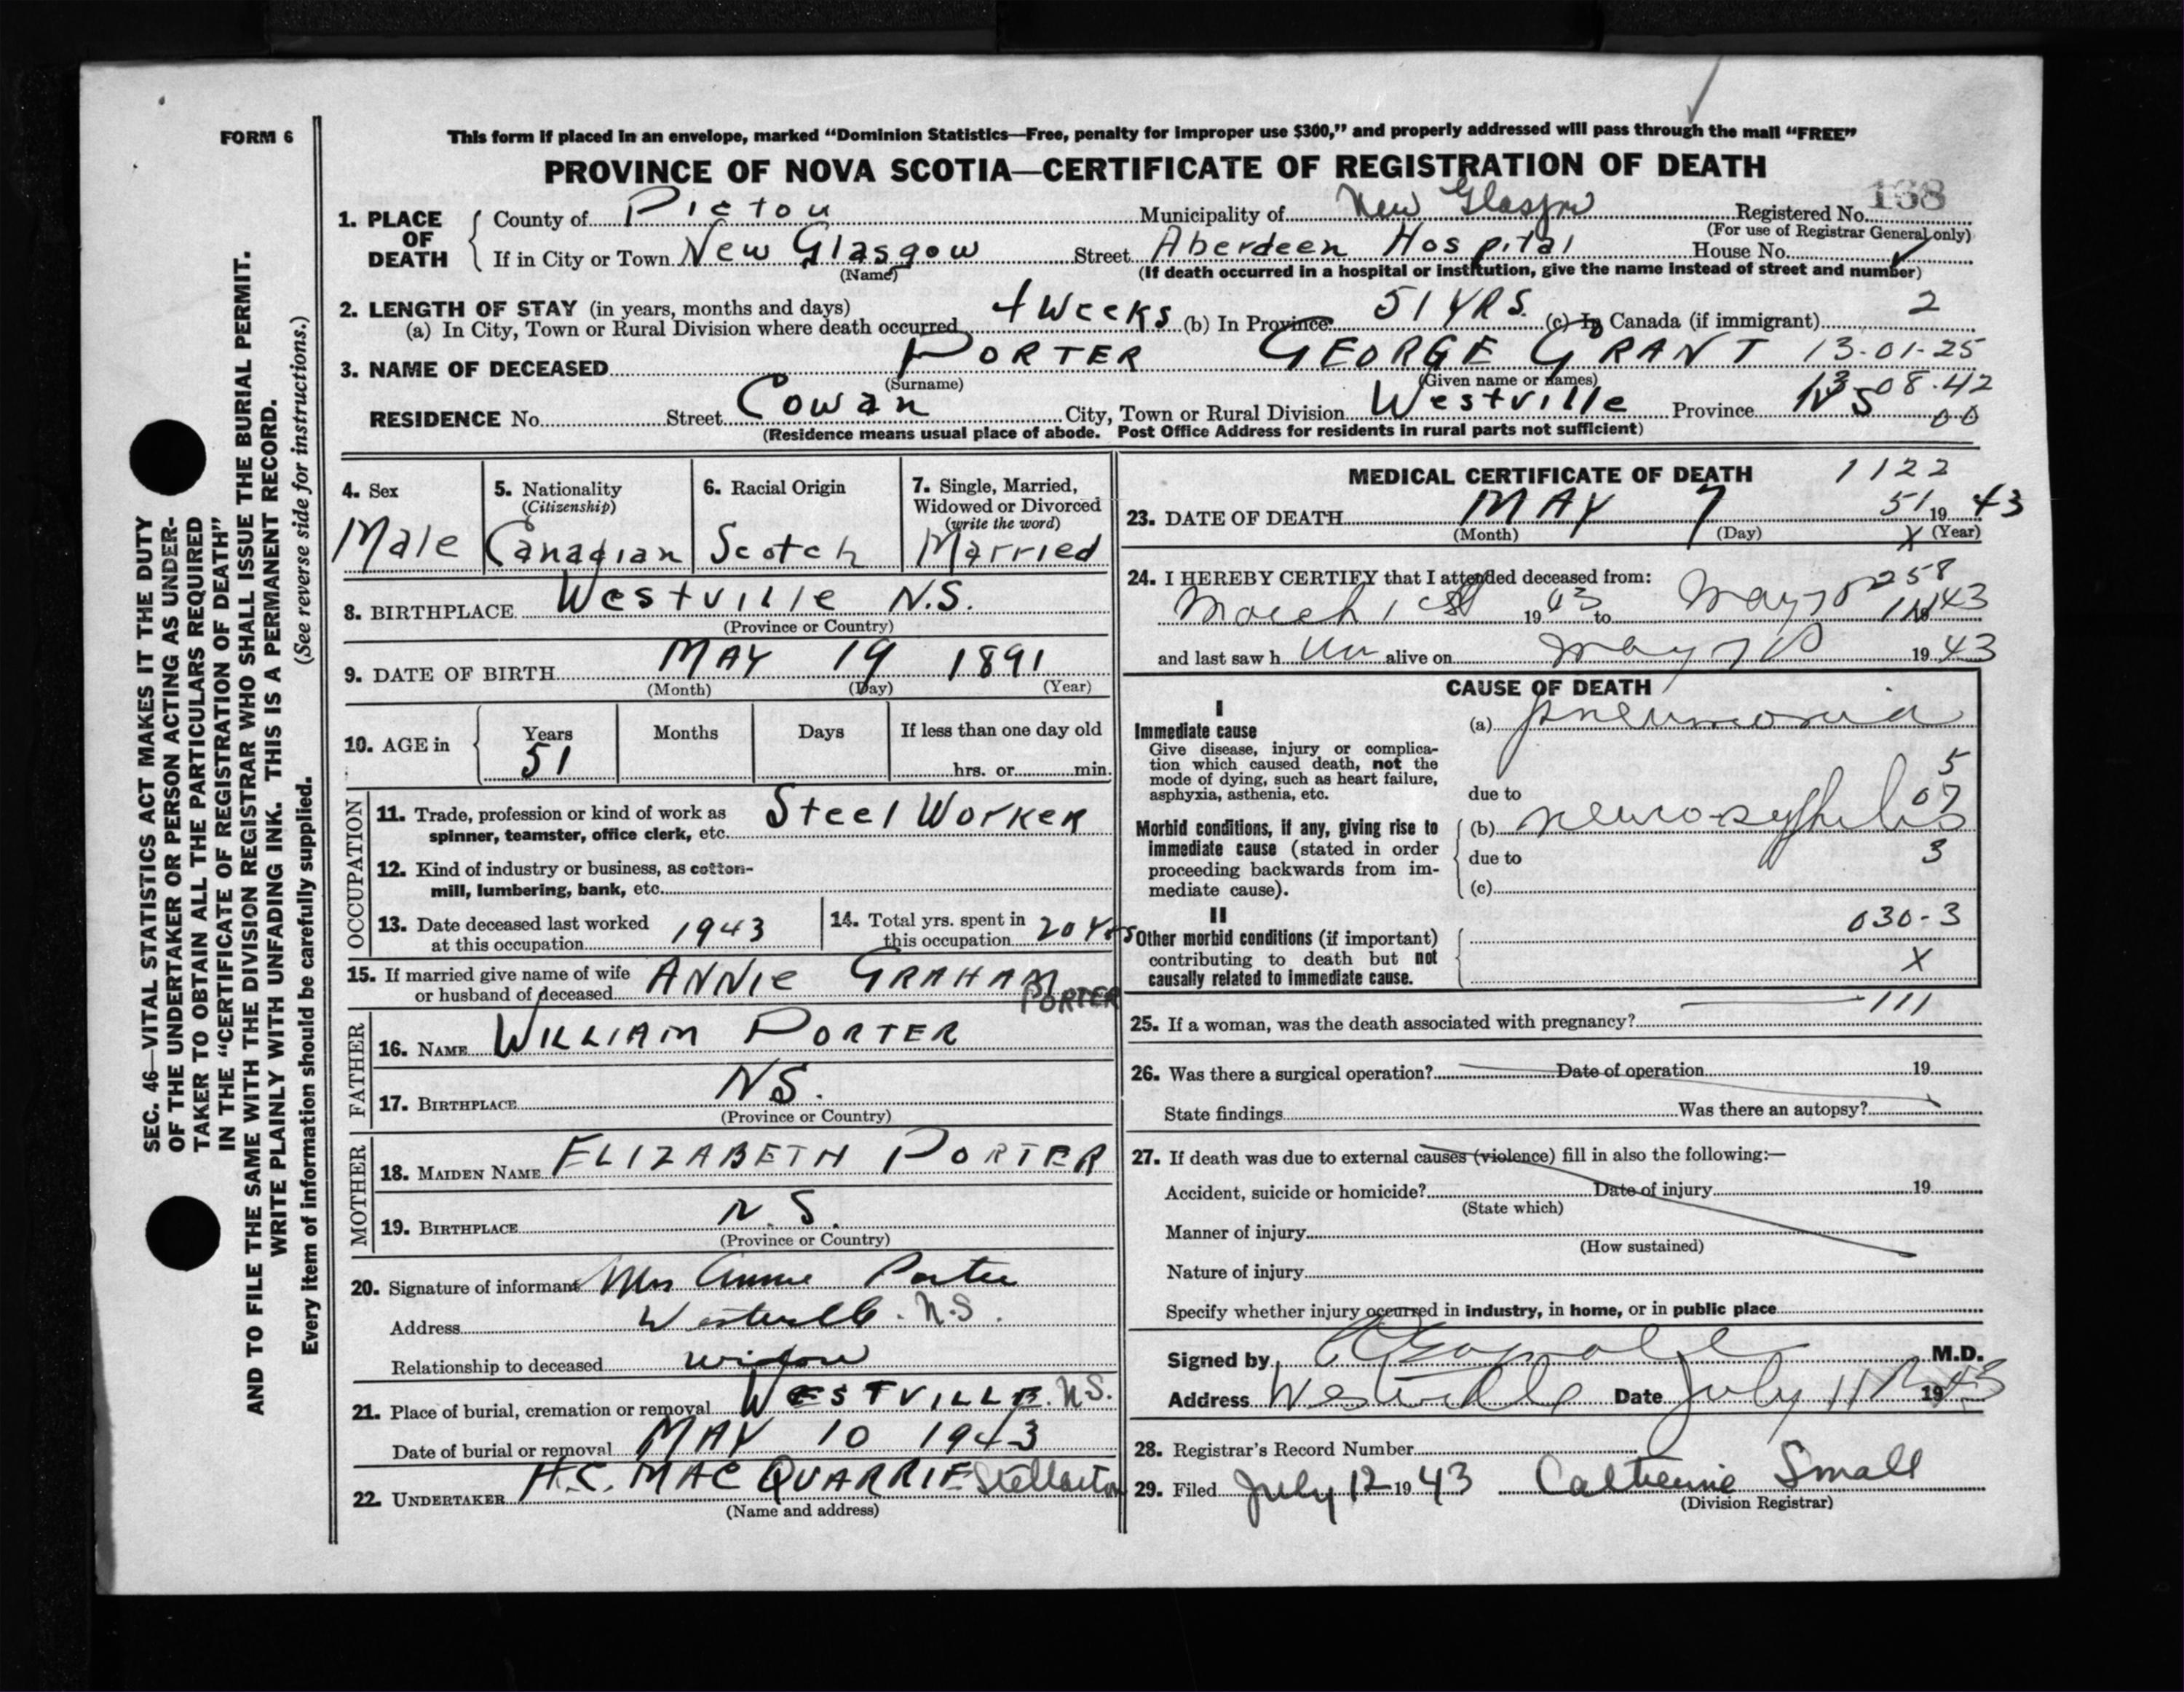 FORM 6
This form if placed in an envelope, marked “Dominion Statistics—Free, penalty for improper use $300,” and properly addressed will pass through the mail “FREE”
PROVINCE OF NOVA SCOTIA—CERTIFICATE OF REGISTRATION OF DEATH
168
1. PLACE OF DEATH
County of Pictou Municipality of New Glasgow Registered No.
(For use of Registrar General only)
If in City or Town New Glasgow Street Aberdeen Hospital House No.
(Name) (If death occurred in a hospital or institution, give the name instead of street and number)
2. LENGTH OF STAY (in years, months and days)
(a) In City, Town or Rural Division where death occurred 4 Weeks (b) In Province 51 YRS. (c) In Canada (if immigrant) 2
3. NAME OF DECEASED PORTER GEORGE GRANT 13-01-25
(Surname) (Given name or names)
13 08-42
RESIDENCE No. Street Cowan City, Town or Rural Division Westville Province NS 00
(Residence means usual place of abode. Post Office Address for residents in rural parts not sufficient)
4. Sex
Male
5. Nationality
(Citizenship)
Canadian
6. Racial Origin
Scotch
7. Single, Married,
Widowed or Divorced
(write the word)
Married
8. BIRTHPLACE Westville N.S.
(Province or Country)
9. DATE OF BIRTH MAY 19 1891
(Month) (Day) (Year)
10. AGE in
Years Months Days If less than one day old
51 hrs. or min.
OCCUPATION
11. Trade, profession or kind of work as
spinner, teamster, office clerk, etc. Steel Worker
12. Kind of industry or business, as cotton-
mill, lumbering, bank, etc.
13. Date deceased last worked
at this occupation 1943
14. Total yrs. spent in
this occupation 20 Yrs
15. If married give name of wife
or husband of deceased ANNIE GRAHAM
PORTER
FATHER
16. NAME WILLIAM PORTER
17. BIRTHPLACE NS.
(Province or Country)
MOTHER
18. MAIDEN NAME ELIZABETH PORTER
19. BIRTHPLACE N.S.
(Province or Country)
20. Signature of informant Mrs Annie Porter
Address Westville. N.S.
Relationship to deceased widow
21. Place of burial, cremation or removal WESTVILLE. N.S.
Date of burial or removal MAY 10 1943
22. UNDERTAKER H.C. MAC QUARRIE Stellarton
(Name and address)
MEDICAL CERTIFICATE OF DEATH 1122
51
23. DATE OF DEATH MAY 7 19 43
(Month) (Day) X (Year)
24. I HEREBY CERTIFY that I attended deceased from:
258
March 1st 19 43 to May 7 1943
and last saw h im alive on May 7 19 43
CAUSE OF DEATH
I
Immediate cause
Give disease, injury or complica-
tion which caused death, not the
mode of dying, such as heart failure,
asphyxia, asthenia, etc.
(a) pneumonia
5
due to
07
Morbid conditions, if any, giving rise to
immediate cause (stated in order
proceeding backwards from im-
mediate cause).
(b) neurosyphilis
due to 3
(c)
II
030-3
Other morbid conditions (if important)
contributing to death but not
causally related to immediate cause.
X
111
25. If a woman, was the death associated with pregnancy?
26. Was there a surgical operation? Date of operation 19
State findings Was there an autopsy?
27. If death was due to external causes (violence) fill in also the following:—
Accident, suicide or homicide? Date of injury 19
(State which)
Manner of injury
(How sustained)
Nature of injury
Specify whether injury occurred in industry, in home, or in public place
Signed by M.D.
Address Westville Date July 11 1943
28. Registrar's Record Number
29. Filed July 12 19 43 Catherine Small
(Division Registrar)
SEC. 46—VITAL STATISTICS ACT MAKES IT THE DUTY
OF THE UNDERTAKER OR PERSON ACTING AS UNDER-
TAKER TO OBTAIN ALL THE PARTICULARS REQUIRED
IN THE “CERTIFICATE OF REGISTRATION OF DEATH”
AND TO FILE THE SAME WITH THE DIVISION REGISTRAR WHO SHALL ISSUE THE BURIAL PERMIT.
WRITE PLAINLY WITH UNFADING INK. THIS IS A PERMANENT RECORD.
Every item of information should be carefully supplied. (See reverse side for instructions.)